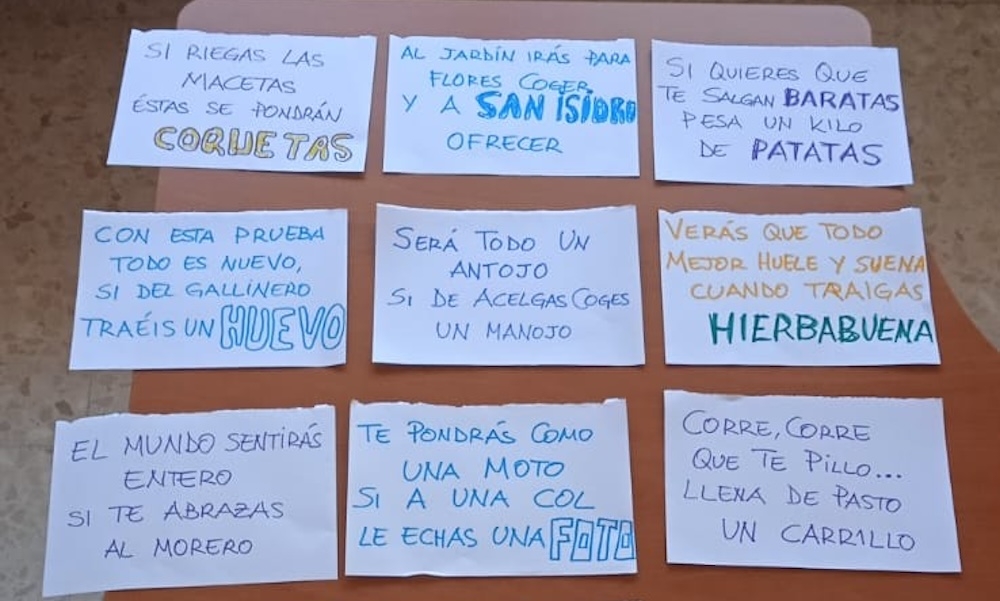 SI RIEGAS LAS
MACETAS
ÉSTAS SE PONDRÁN
COQUETAS
AL JARDÍN IRÁS PARA
FLORES COGER
Y A SAN ISIDRO
OFRECER
SI QUIERES QUE
TE SALGAN BARATAS
PESA UN KILO
DE PATATAS
CON ESTA PRUEBA
TODO ES NUEVO,
SI DEL GALLINERO
TRAÉIS UN HUEVO
SERÁ TODO UN
ANTOJO
SI DE ACELGAS COGES
UN MANOJO
VERÁS QUE TODO
MEJOR HUELE Y SUENA
CUANDO TRAIGAS
HIERBABUENA
EL MUNDO SENTIRÁS
ENTERO
SI TE ABRAZAS
AL MORERO
TE PONDRÁS COMO
UNA MOTO
SI A UNA COL
LE ECHAS UNA FOTO
CORRE, CORRE
QUE TE PILLO...
LLENA DE PASTO
UN CARRILLO